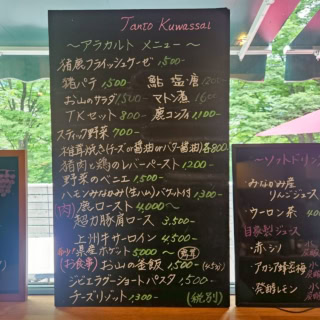 Tanto Kuwassai
～アラカルト メニュー～
猪鹿フライッシュケーゼ 1,500-
猪パテ 1,500-
鮎 塩 1200-
お山のサラダ 1,500-
マトン 1600
TKセット 800-
鹿コンフィ 1,100-
スティック野菜 700-
椎茸焼き(チーズor醤油orバター醤油)各800-
猪肉と鶏のレバーペースト 1,200-
野菜のペンネ 1,500-
ハモンみなかみ(生ハム)バゲット付 1,300-
(肉)鹿ロースト 4,000～
超力豚肩ロース 3,500-
上州牛サーロイン 4,500-
5000～
(お食事)お山の釜飯 1,500-(45分)
ジビエラグーショートパスタ 1,500-
チーズリゾット 1,300-
(税別)
～ソフトドリ
みなかみ産
りんごジュース
ウーロン茶 400
自家製ジュース
・赤シソ
・アカシア蜂蜜梅
・発酵レモン